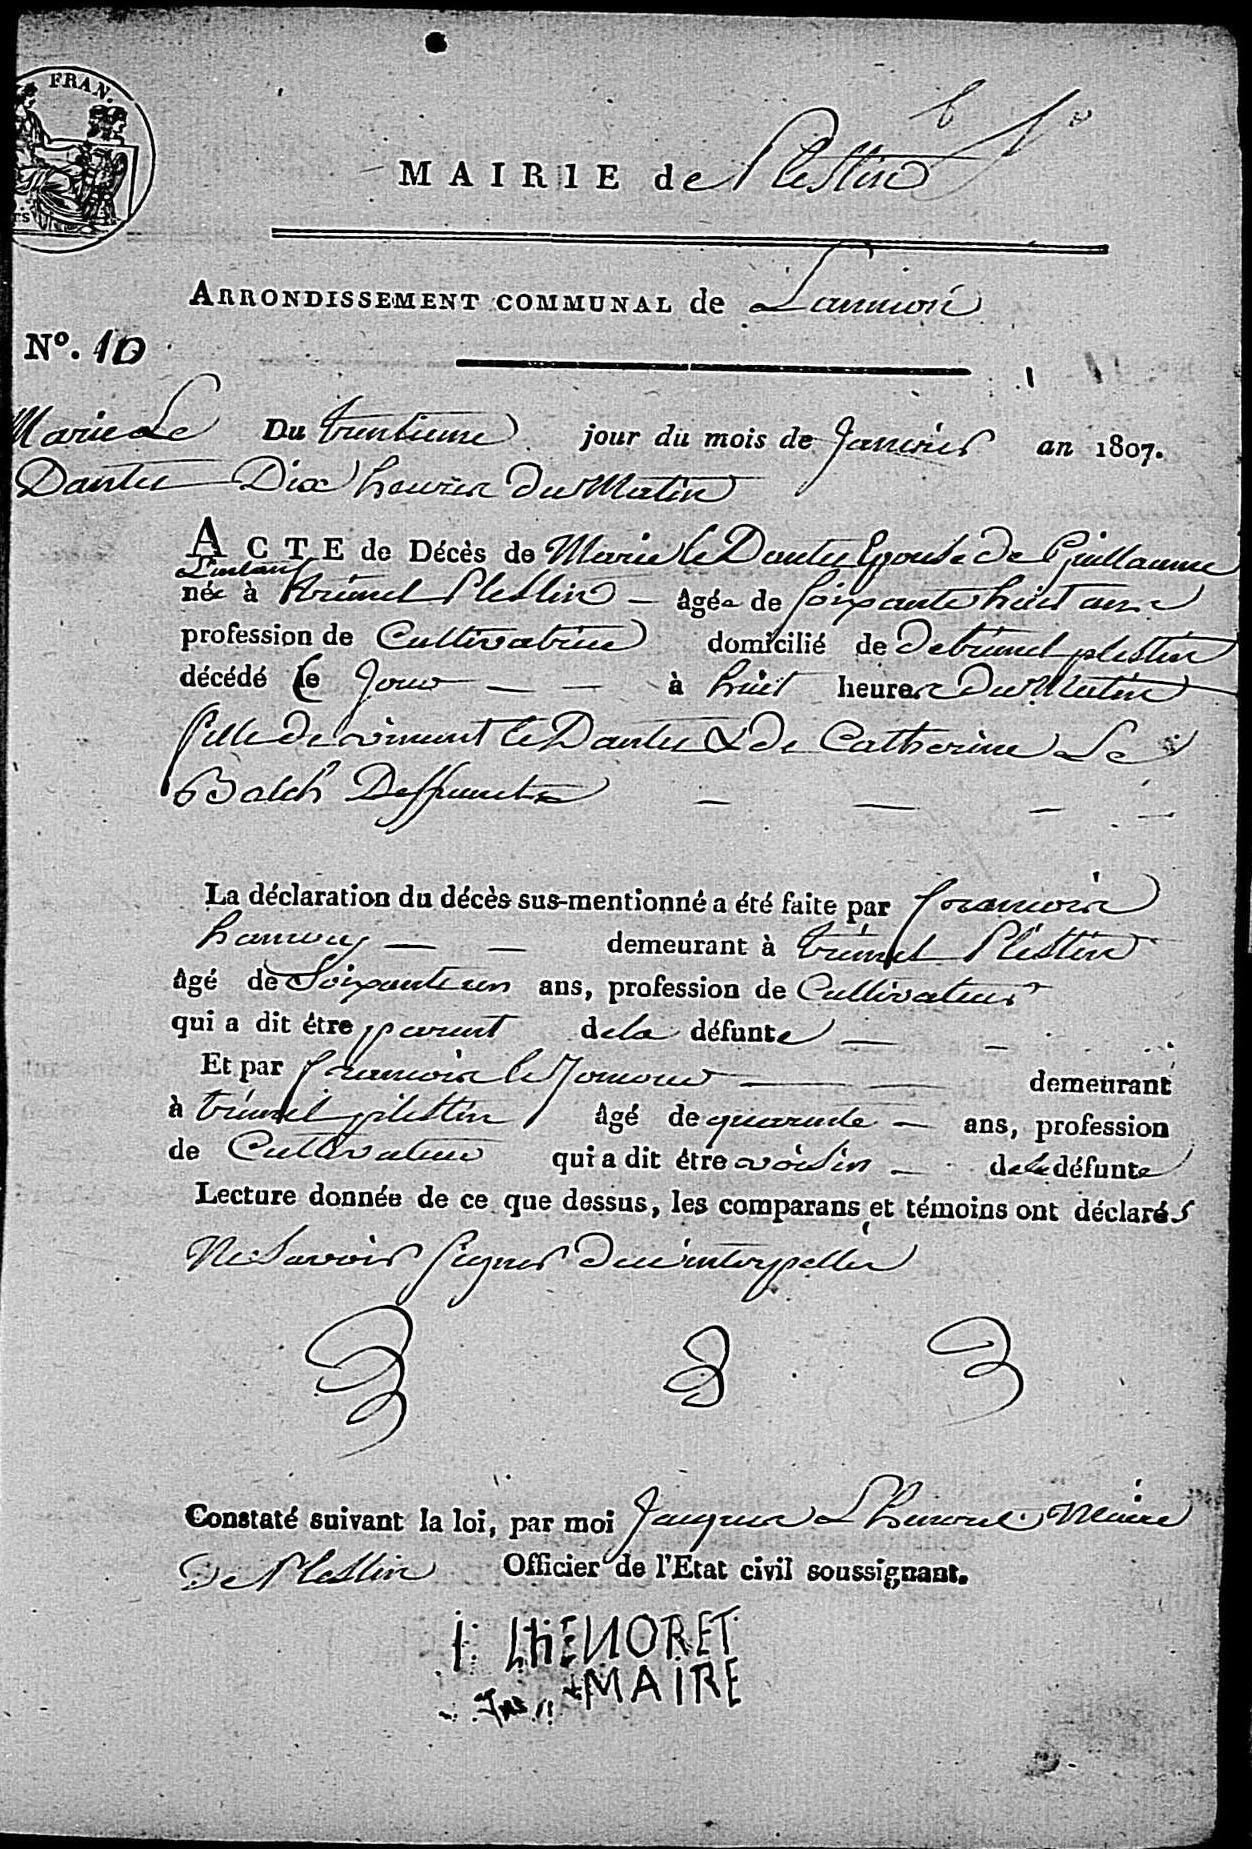 FRAN.
MAIRIE de Plestin
ARRONDISSEMENT COMMUNAL de Lannion
Nº. 10
Marie Le Du trentieme jour du mois de Janvier an 1807.
Dantec Dix heures du Matin
ACTE de Décès de Marie le Dantec Epouse de Guillaume
née à trémel Plestin — âgée de soixante huit ans
profession de Cultivatrice domicilié de De trémel plestin
décédé Ce Jour — — à huit heures du Matin
fille de vincent le Dantec & de Catherine Le
Balch Deffuncts — — —
La déclaration du décès sus-mentionné a été faite par francois
— — demeurant à trémel Plestin
âgé de Soixante un ans, profession de Cultivateur
qui a dit être parent de la défunte — —
Et par francois le — — demeurant
à trémel plestin âgé de quarante — ans, profession
de Cultivateur qui a dit être voisin — de la défunte
Lecture donnée de ce que dessus, les comparans et témoins ont déclarés
Ne Savoir Signer De ce interpellés
Constaté suivant la loi, par moi Jacques Lhenoret Maire
De Plestin Officier de l'Etat civil soussignant.
J: LhENORET
MAIRE